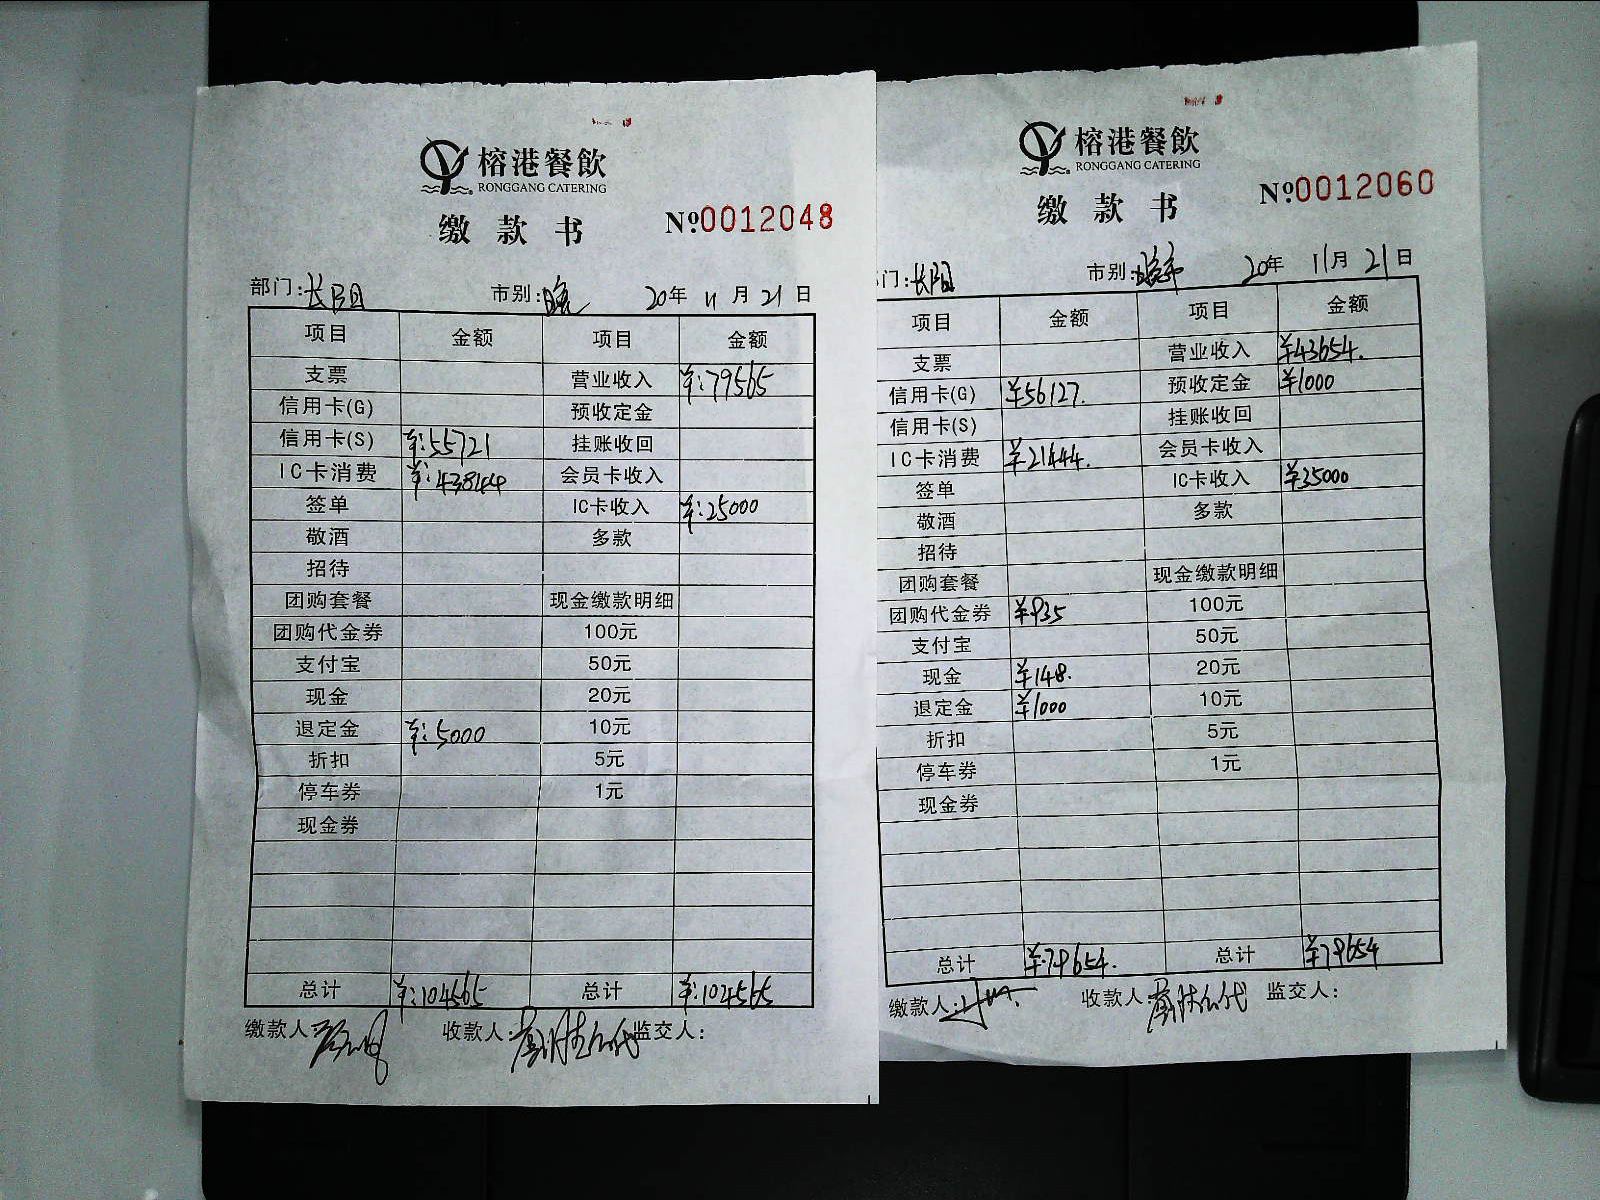 榕港餐飲
RONGGANG CATERING
缴款书 №0012048
部门:长阳 市别:晚 20年 11月 21日
项目 金额 项目 金额
支票 营业收入 ¥:79565
信用卡(G) 预收定金
信用卡(S) ¥:55721 挂账收回
IC卡消费 ¥:43844 会员卡收入
签单 IC卡收入 ¥:25000
敬酒 多款
招待
团购套餐 现金缴款明细
团购代金券 100元
支付宝 50元
现金 20元
退定金 ¥:5000 10元
折扣 5元
停车券 1元
现金券
总计 ¥:104565 总计 ¥:104565
缴款人 收款人: 监交人:
榕港餐飲
RONGGANG CATERING
缴款书 №0012060
门:长阳 市别:晚市 20年 11月 21日
项目 金额 项目 金额
支票 营业收入 ¥43654.
信用卡(G) ¥56127. 预收定金 ¥1000
信用卡(S) 挂账收回
IC卡消费 ¥21444. 会员卡收入
签单 IC卡收入 ¥35000
敬酒 多款
招待
团购套餐 现金缴款明细
团购代金券 ¥935 100元
支付宝 50元
现金 ¥148. 20元
退定金 ¥1000 10元
折扣 5元
停车券 1元
现金券
总计 ¥79654. 总计 ¥79654
缴款人: 收款人: 监交人: